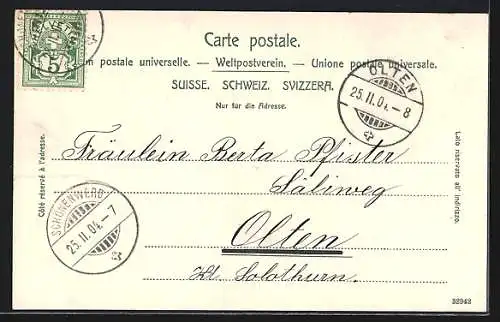 HELVETIA
5
Carte postale.
on postale universelle. — Weltpostverein. — Unione postale universale.
SUISSE. SCHWEIZ. SVIZZERA.
Nur für die Adresse.
OLTEN
25.II.04.-8
Côté réservé à l'adresse.
Lato riservato all' indirizzo.
Fräulein Berta Pfister
Säliweg
Olten
Kt. Solothurn.
SCHÖNENWERD
25.II.04.-7
32942